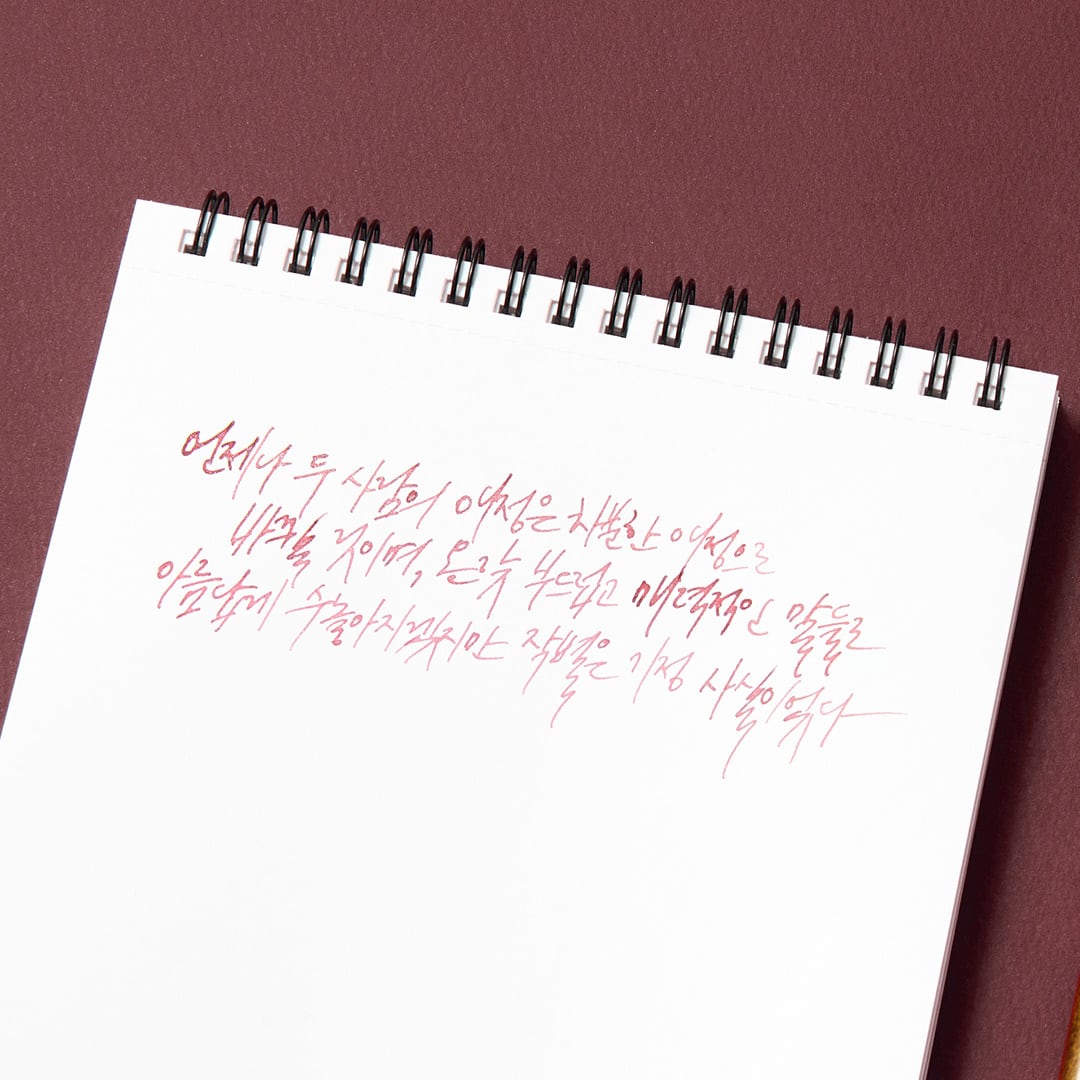 언제나 두 사람의 여정은 차분한 여정으로
바뀌울 것이며, 온갖 부드럽고 매력적인 말들로
아름답게 수놓아지겠지만 작별은 기정 사실이었다